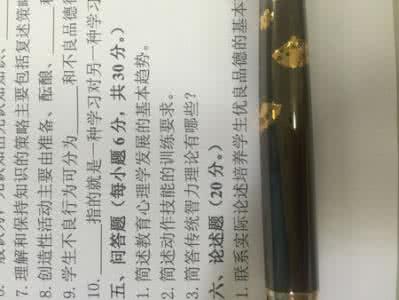 7. 理解和保持知识的策略主要包括复述策略
8. 创造性活动主要由准备、酝酿、____和
9. 学生不良行为可分为____和不良品德行
10. ____指的就是一种学习对另一种学习
五、问答题（每小题 6 分，共 30 分。）
1. 简述教育心理学发展的基本趋势。
2. 简述动作技能的训练要求。
3. 简答传统智力理论有哪些？
六、论述题（20 分。）
1. 联系实际论述培养学生优良品德的基本